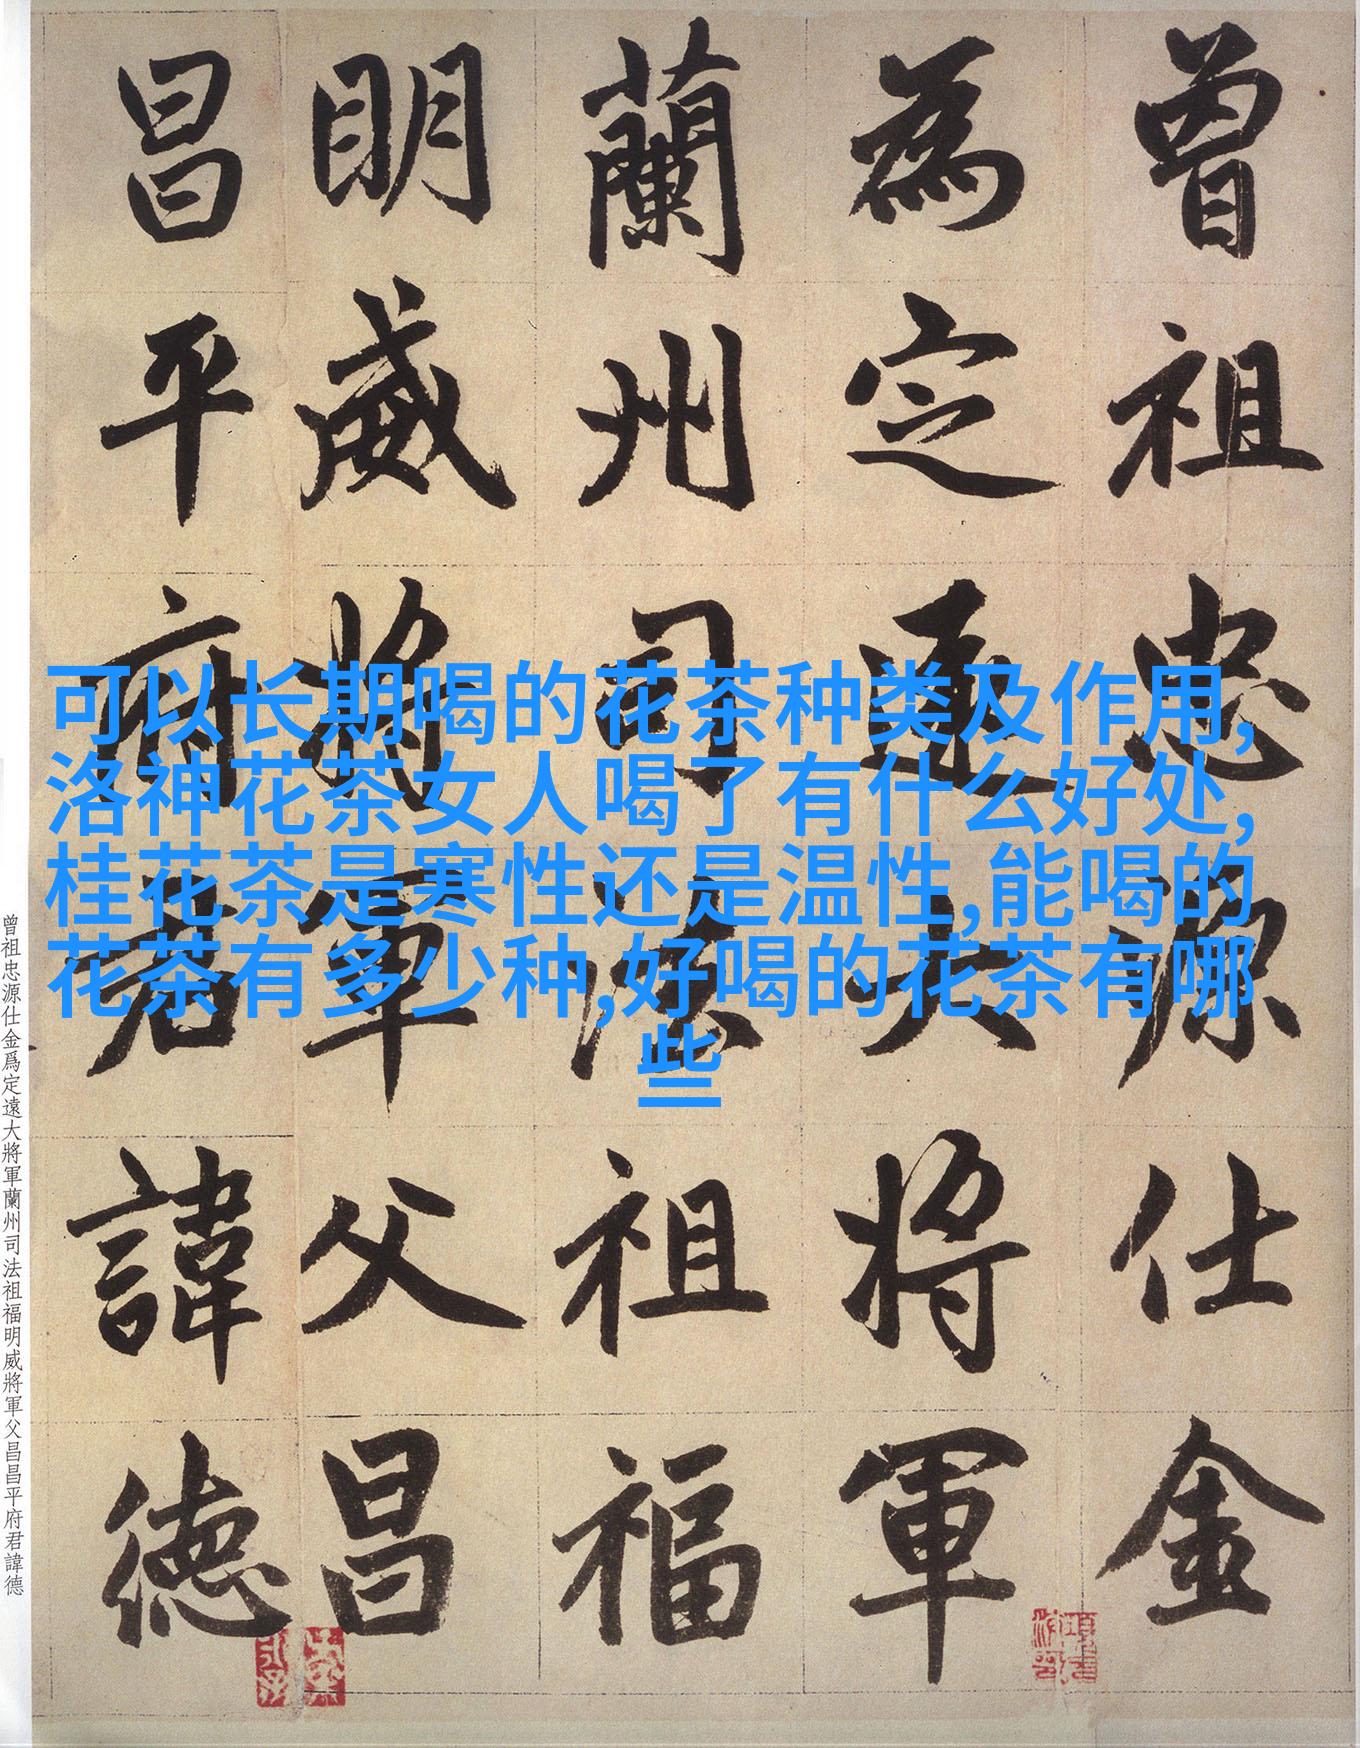 可以长期喝的花茶种类及作用,
洛神花茶女人喝了有什么好处,
桂花茶是寒性还是温性,能喝的
花茶有多少种,好喝的花茶有哪
些
曾祖忠源仕金
為定遠大將軍
蘭州司法祖福
明威將軍父昌
昌平府君諱德
曾祖忠源仕金爲定遠大將軍蘭州司法祖福明威將軍父昌昌平府君諱德